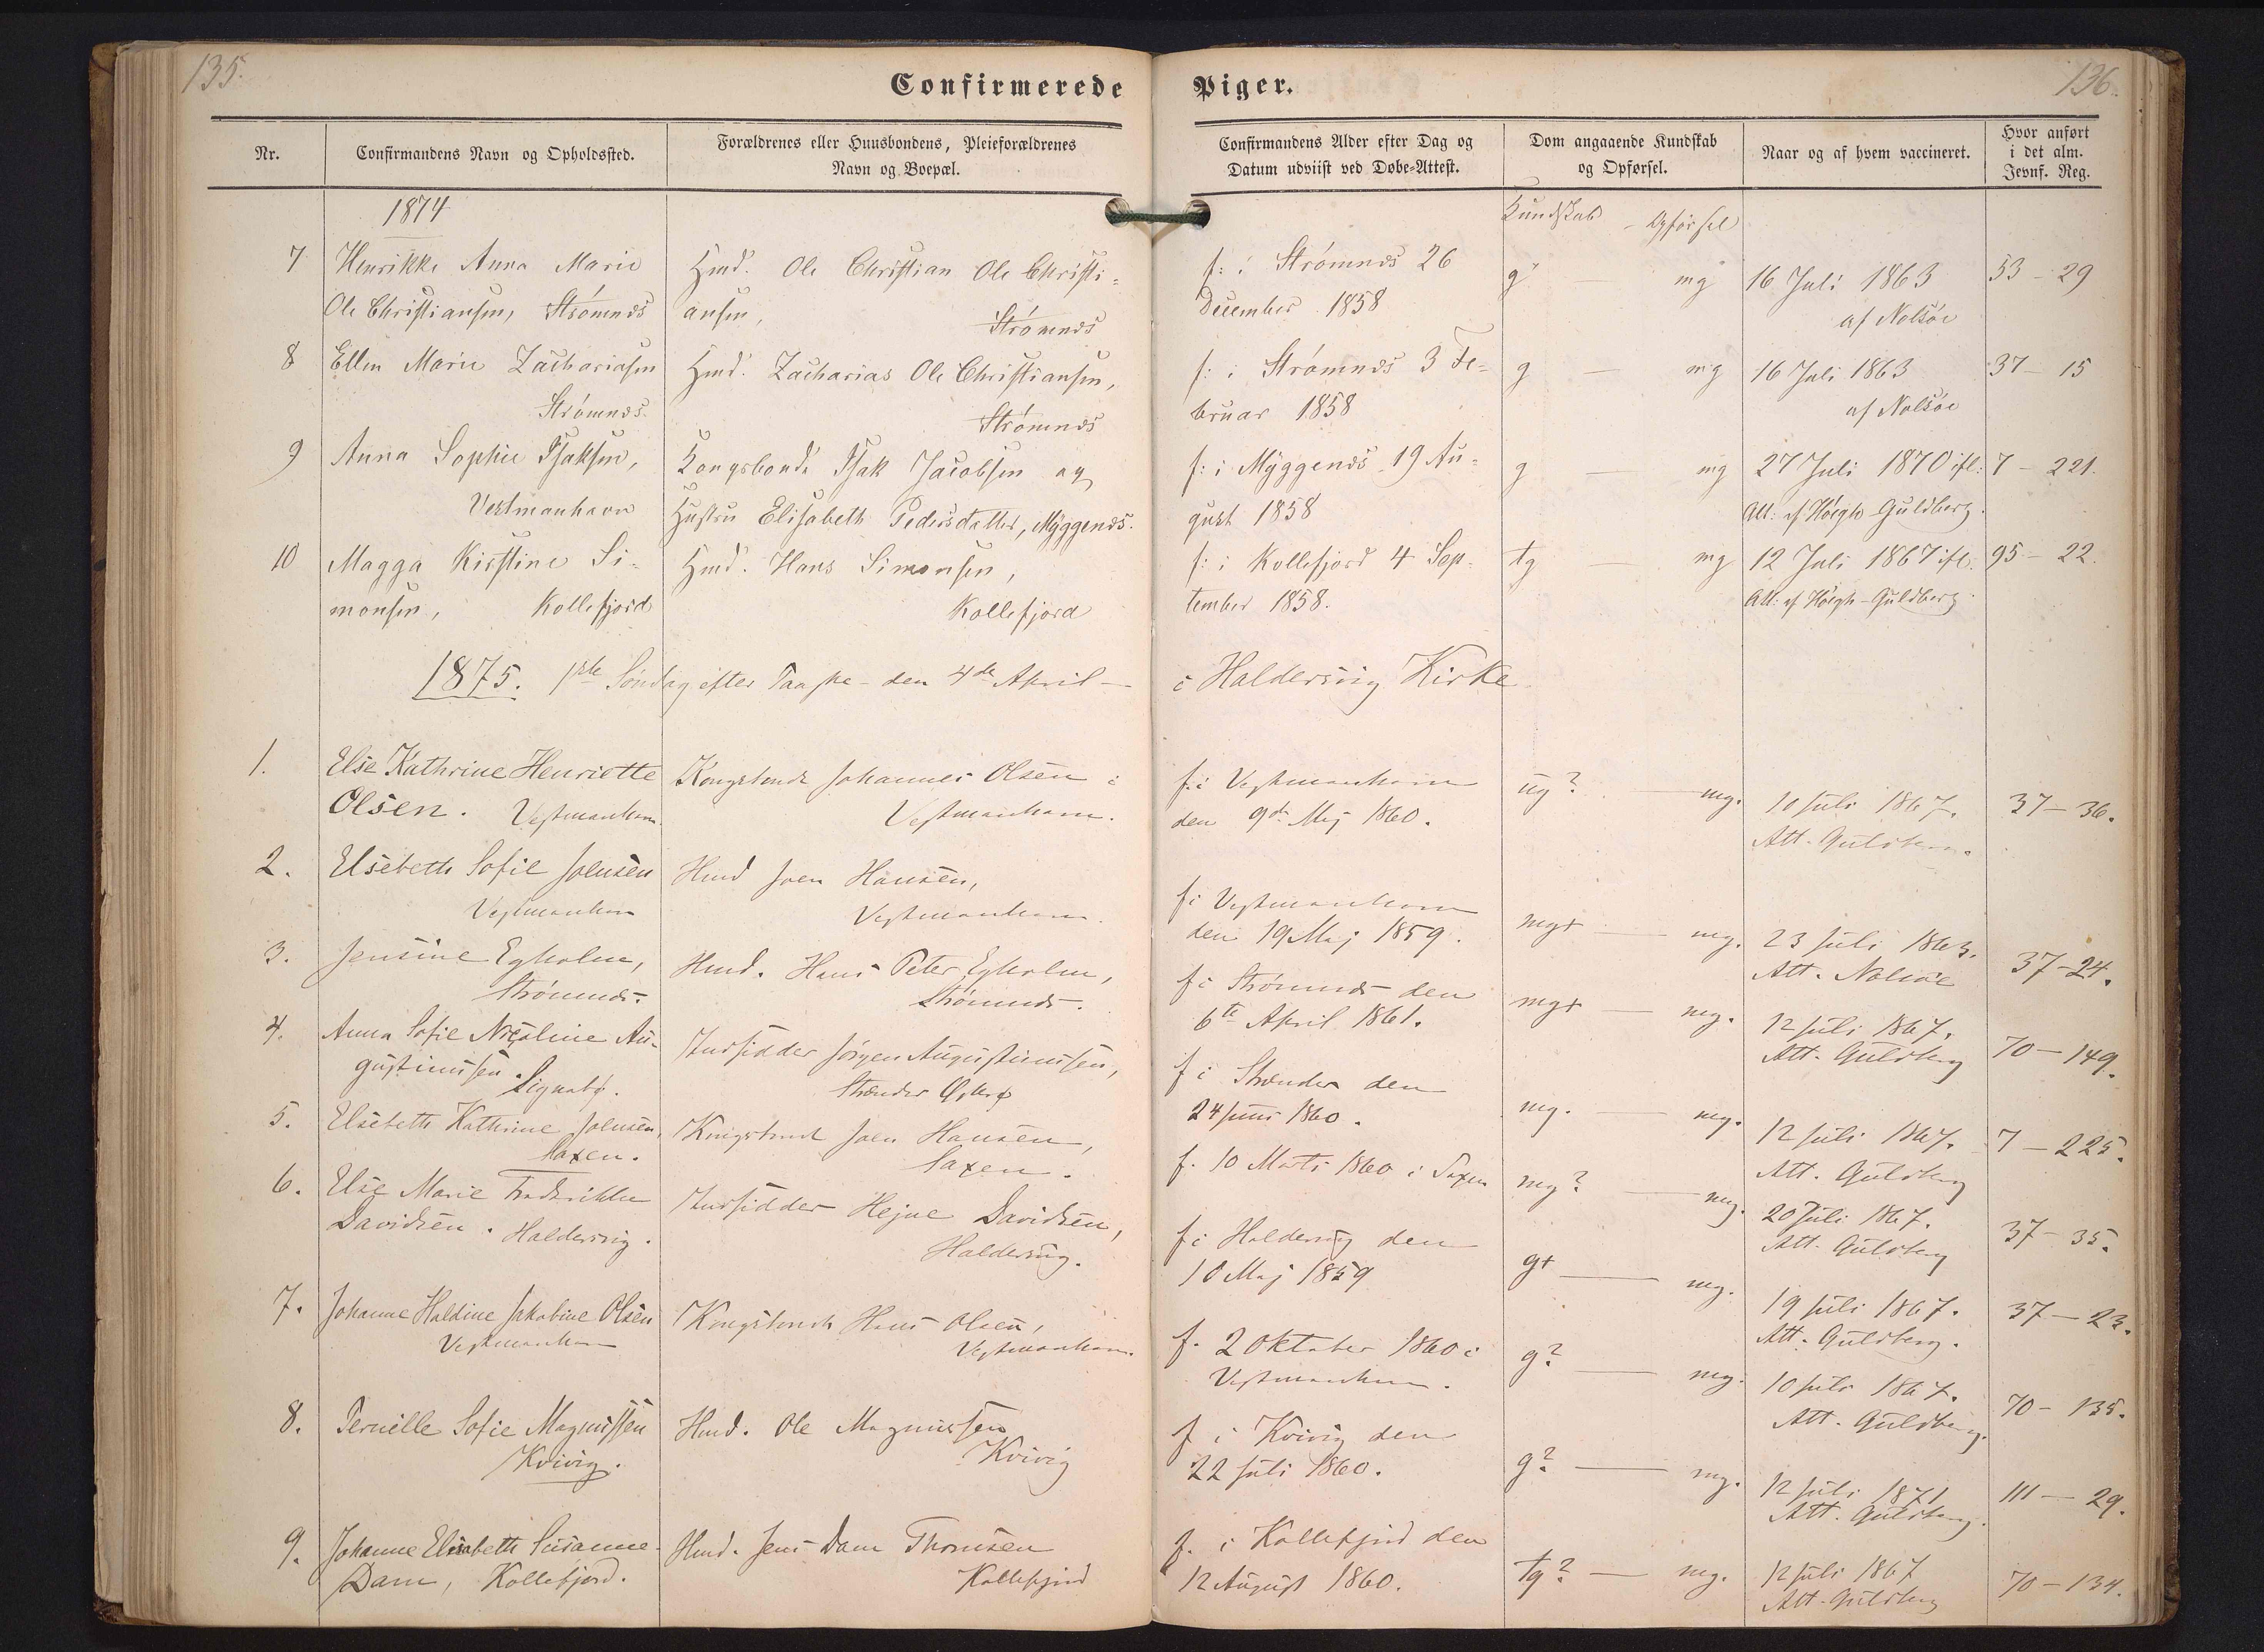 135.
136.
Confirmerede Piger.
Nr.
Confirmandens Navn og Opholdssted.
Forældrenes eller Huusbondens, Pleieforældrenes
Navn og Boepæl.
Confirmandens Alder efter Dag og
Datum udviist ved Døbe-Attest.
Dom angaaende Kundskab
og Opførsel.
Naar og af hvem vaccineret.
Hvor anført
i det alm.
Jevnf. Reg.
1874
Kundskab - Opførsel
7 Henrikke Anna Marie
Ole Christiansen, Strømnæs
Hmd. Ole Christian Ole Christi-
ansen,
Strømnæs
f: i Strømnæs 26
December 1858
g — mg
16 Juli 1863
af Nolsøe
53 - 29
8 Ellen Marie Zachariasen
Strømnæs
Hmd. Zacharias Ole Christiansen,
Strømnæs
f: i Strømnæs 3 Fe-
bruar 1858
g — mg
16 Juli 1863
af Nolsøe
37 - 15
9 Anna Sophie Isaksen,
Vestmanhavn
Kongsbonde Isak Jacobsen og
Hustru Elisabeth Pedersdatter, Myggenæs.
f: i Myggenæs 19 Au-
gust 1858
g — mg
27 Juli 1870 ifl:
Att: af Høegh-Guldberg.
7 - 221.
10 Magga Kirstine Si-
monsen, Kollefjord
Hmd. Hans Simonsen,
Kollefjord
f: i Kollefjord 4 Sep-
tember 1858.
tg — mg
12 Juli 1867 ifl.
Att: af Høegh-Guldberg.
95 - 22.
1875. 1ste Søndag efter Paaske - den 4de April — i Haldersvig Kirke
1. Else Kathrine Henriette
Olsen. Vestmanhavn.
Kongsbonde Johannes Olsen i
Vestmanhavn.
f. i Vestmanhavn
den 9de Maj 1860.
ug? — mg.
10 Juli 1867.
Att. Guldberg.
37 - 36.
2. Elsebeth Sofie Joensen
Vestmanhavn
Hmd Joen Hansen,
Vestmanhavn.
f i Vestmanhavn
den 19 Maj 1859.
mg+ — mg.
23 Juli 1863.
Att. Nolsøe
37 - 24.
3. Jensine Egholm,
Strømnæs.
Hmd. Hans Peter Egholm,
Strømnæs.
f i Strømnæs den
6te April 1861.
mg+ — mg.
12 Juli 1867.
Att. Guldberg
70 - 149.
4. Anna Sofie Nicoline Au-
gustinussen. Signabø.
Indsidder Jørgen Augustinussen,
Strænder Østerø
f i Strænder den
24 Juni 1860.
mg. — mg.
12 Juli 1867.
Att. Guldberg
7 - 225.
5. Elsebeth Kathrine Joensen,
Saxen.
Kongsbonde Joen Hansen,
Saxen.
f. 10 Marts 1860 i Saxen
mg? — mg.
20 Juli 1867.
Att. Guldberg
37 - 35.
6. Else Marie Frederikke
Davidsen. Haldersvig.
Indsidder Hejne Davidsen,
Haldersvig.
f i Haldersvig den
10 Maj 1859
g+ — mg.
19 Juli 1867.
Att. Guldberg.
37 - 23.
7. Johanne Haldine Jakobine Olsen
Vestmanhavn
Kongsbonde Hans Olsen,
Vestmanhavn.
f. 2 Oktober 1860 i
Vestmanhavn.
g? — mg.
10 Juli 1867.
Att. Guldberg.
70 - 135.
8. Pernille Sofie Magnussen
Kvivig.
Hmd. Ole Magnussen
Kvivig
f i Kvivig den
22 Juli 1860.
g? — mg.
12 Juli 1871
Att. Guldberg.
111 - 29.
9. Johanne Elisabeth Susanne
Dam, Kollefjord.
Hmd. Jens Dam Thomsen
Kollefjord
f. i Kollefjord den
12 August 1860.
tg? — mg.
12 Juli 1867
Att. Guldberg
70 - 134.